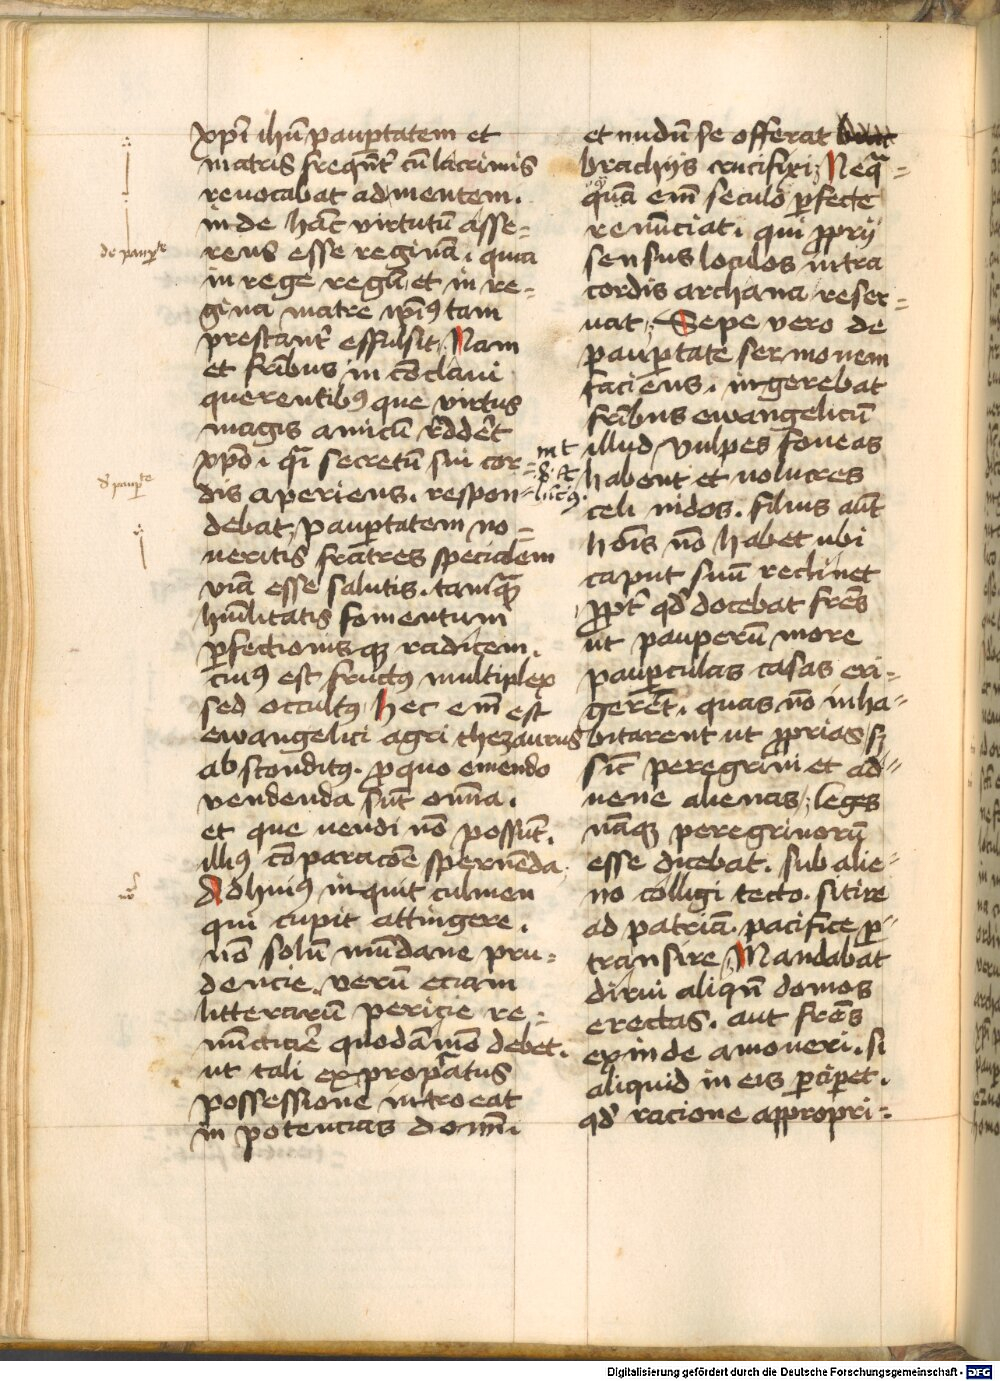 xp̄i ihū pauꝑtatem et
matris freqn̄t̄ cū lacrimis
reuocabat ad mentem.
inde hāc virtutū asse-
rens esse reginā. quia
in rege regū et in re-
gina matre ip̄iꝰ tam
prestant̄ effulsit. Nam
et fr̄ibus in cōclaui
querentibꝰ que virtus
magis amicū rēdder̄t
xp̄o. q̄i secretū sui cor-
dis aperiens. respon-
debat. pauꝑtatem no-
ueritis fratres specialem
viā esse salutis. tamq̄
hūilitatis fomentum
ꝑfectionisqꝫ radicem.
cuiꝰ est fructꝰ multiplex
sed occultꝰ. hec em̄ est
ewangelici agri thezaurus
absconditꝰ. ꝓ quo emendo
vendenda sūt omn̄ia.
et que uendi nō possūt.
illiꝰ cōparacōe spernēda.
Ad huiꝰ inquit culmen
qui cupit attingere.
nōn solū mūdane pru-
dencie. verū eciam
litterarū pericie re-
nūctiar̄ quodāmō debet.
ut tali expropr̄atus
possessione introeat
in potencias domini
de pauꝑte
d' pauꝑte
no
et nudū se offerat
brachijs crucifixi. Neq̄-
quā em̄ seculo ꝑfecte
renūnciat. qui ꝓprij
sensus loculos intra
cordis archana reser-
uat. Sepe vero de
pauꝑtate sermonem
faciens. ingerebat
fr̄ibus ewangelicū
illud vulpes foueas
habent et uolucres
celi nidos. filius aūt
hoīs nō habet ubi
caput suū reclinet
mt
8. et
lucꝰ.
ꝓpt̄ qd̄ docebat frēs
ut pauperū more
pauꝑculas casas eri-
gerēt. quas nō inha-
bitarent ut ꝓprias sꝫ
sic̄ peregrini et ad-
uene alienas. leges
nāqꝫ peregrinorū
esse dicebat. sub alie-
no colligi tecto. sitire
ad patriā. pacifice ꝑ-
transire. Mandabat
dirui aliqn̄ domos
erectas. aut frēs
exinde amoueri. si
aliquid in eis ꝑciꝑet.
qd̄ racione appropri-
Digitalisierung gefördert durch die Deutsche Forschungsgemeinschaft - DFG